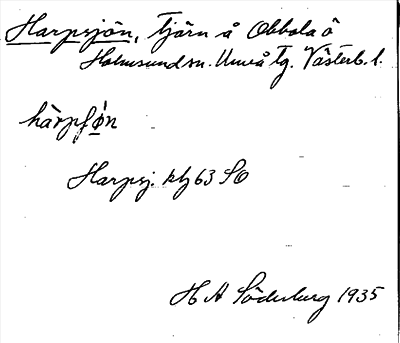 Harpsjön, tjärn å Obbola ö
Holmsund sn. Umeå tg. Västerb. l.
hàrpʃø̀n
Harpsj. kbl 63 SO
H A Söderberg 1935